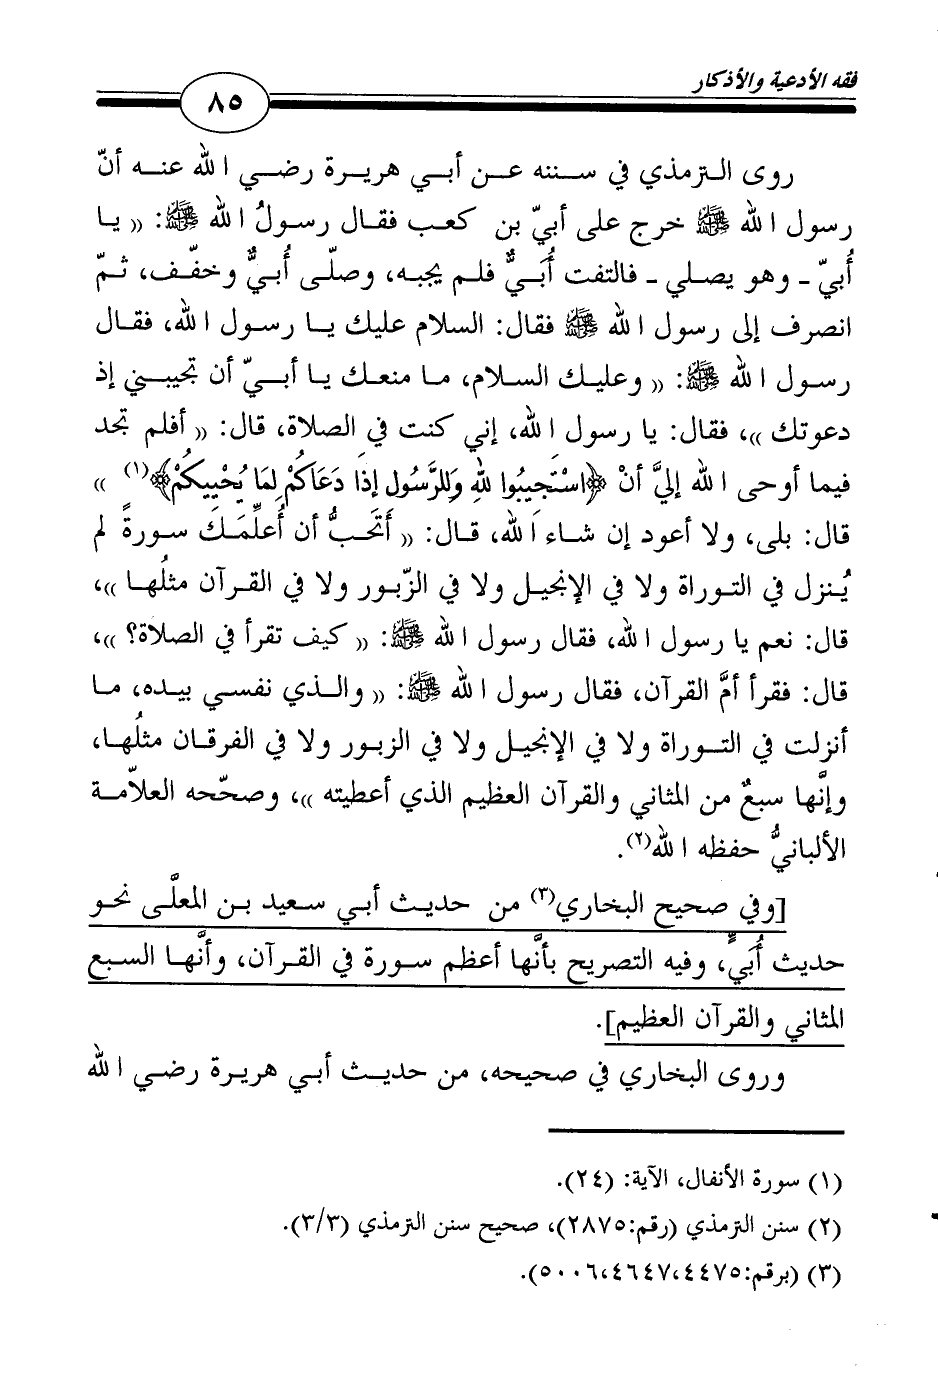 فقه الأدعية والأذكار
٨٥
روى الترمذي في سننه عن أبي هريرة رضي الله عنه أنّ
رسول الله ﷺ خرج على أبيّ بن كعب فقال رسولُ الله ﷺ: (( يا
أُبيّ ـ وهو يصلي ـ فالتفت أُبَيٌّ فلم يجبه، وصلّى أُبيٌّ وخفّف، ثمّ
انصرف إلى رسول الله ﷺ فقال: السلام عليك يا رسول الله، فقال
رسول الله ﷺ: (( وعليك السلام، ما منعك يا أبيّ أن تجيبني إذ
دعوتك ))، فقال: يا رسول الله، إني كنت في الصلاة، قال: (( أفلم تجد
فيما أوحى الله إليَّ أنْ ﴿اسْتَجِيبُوا لِلَّهِ وَلِلرَّسُولِ إِذَا دَعَاكُمْ لِمَا يُحْيِيكُمْ﴾(١) ))
قال: بلى، ولا أعود إن شاء الله، قال: (( أَتَحبُّ أن أُعلِّمَكَ سورةً لم
يُنزل في التوراة ولا في الإنجيل ولا في الزّبور ولا في القرآن مثلُها ))،
قال: نعم يا رسول الله، فقال رسول الله ﷺ: (( كيف تقرأ في الصلاة؟ ))،
قال: فقرأ أمَّ القرآن، فقال رسول الله ﷺ: (( والذي نفسي بيده، ما
أنزلت في التوراة ولا في الإنجيل ولا في الزبور ولا في الفرقان مثلُها،
وإنَّها سبعٌ من المثاني والقرآن العظيم الذي أعطيته ))، وصحّحه العلاّمة
الألبانيُّ حفظه الله(٢).
[وفي صحيح البخاري(٣) من حديث أبي سعيد بن المعلَّى نحو
حديث أُبَيٍّ، وفيه التصريح بأنَّها أعظم سورة في القرآن، وأنَّها السبع
المثاني والقرآن العظيم].
وروى البخاري في صحيحه، من حديث أبي هريرة رضي الله
(١) سورة الأنفال، الآية: (٢٤).
(٢) سنن الترمذي (رقم:٢٨٧٥)، صحيح سنن الترمذي (٣/٣).
(٣) (برقم:٤٤٧٥،٤٦٤٧،٥٠٠٦).